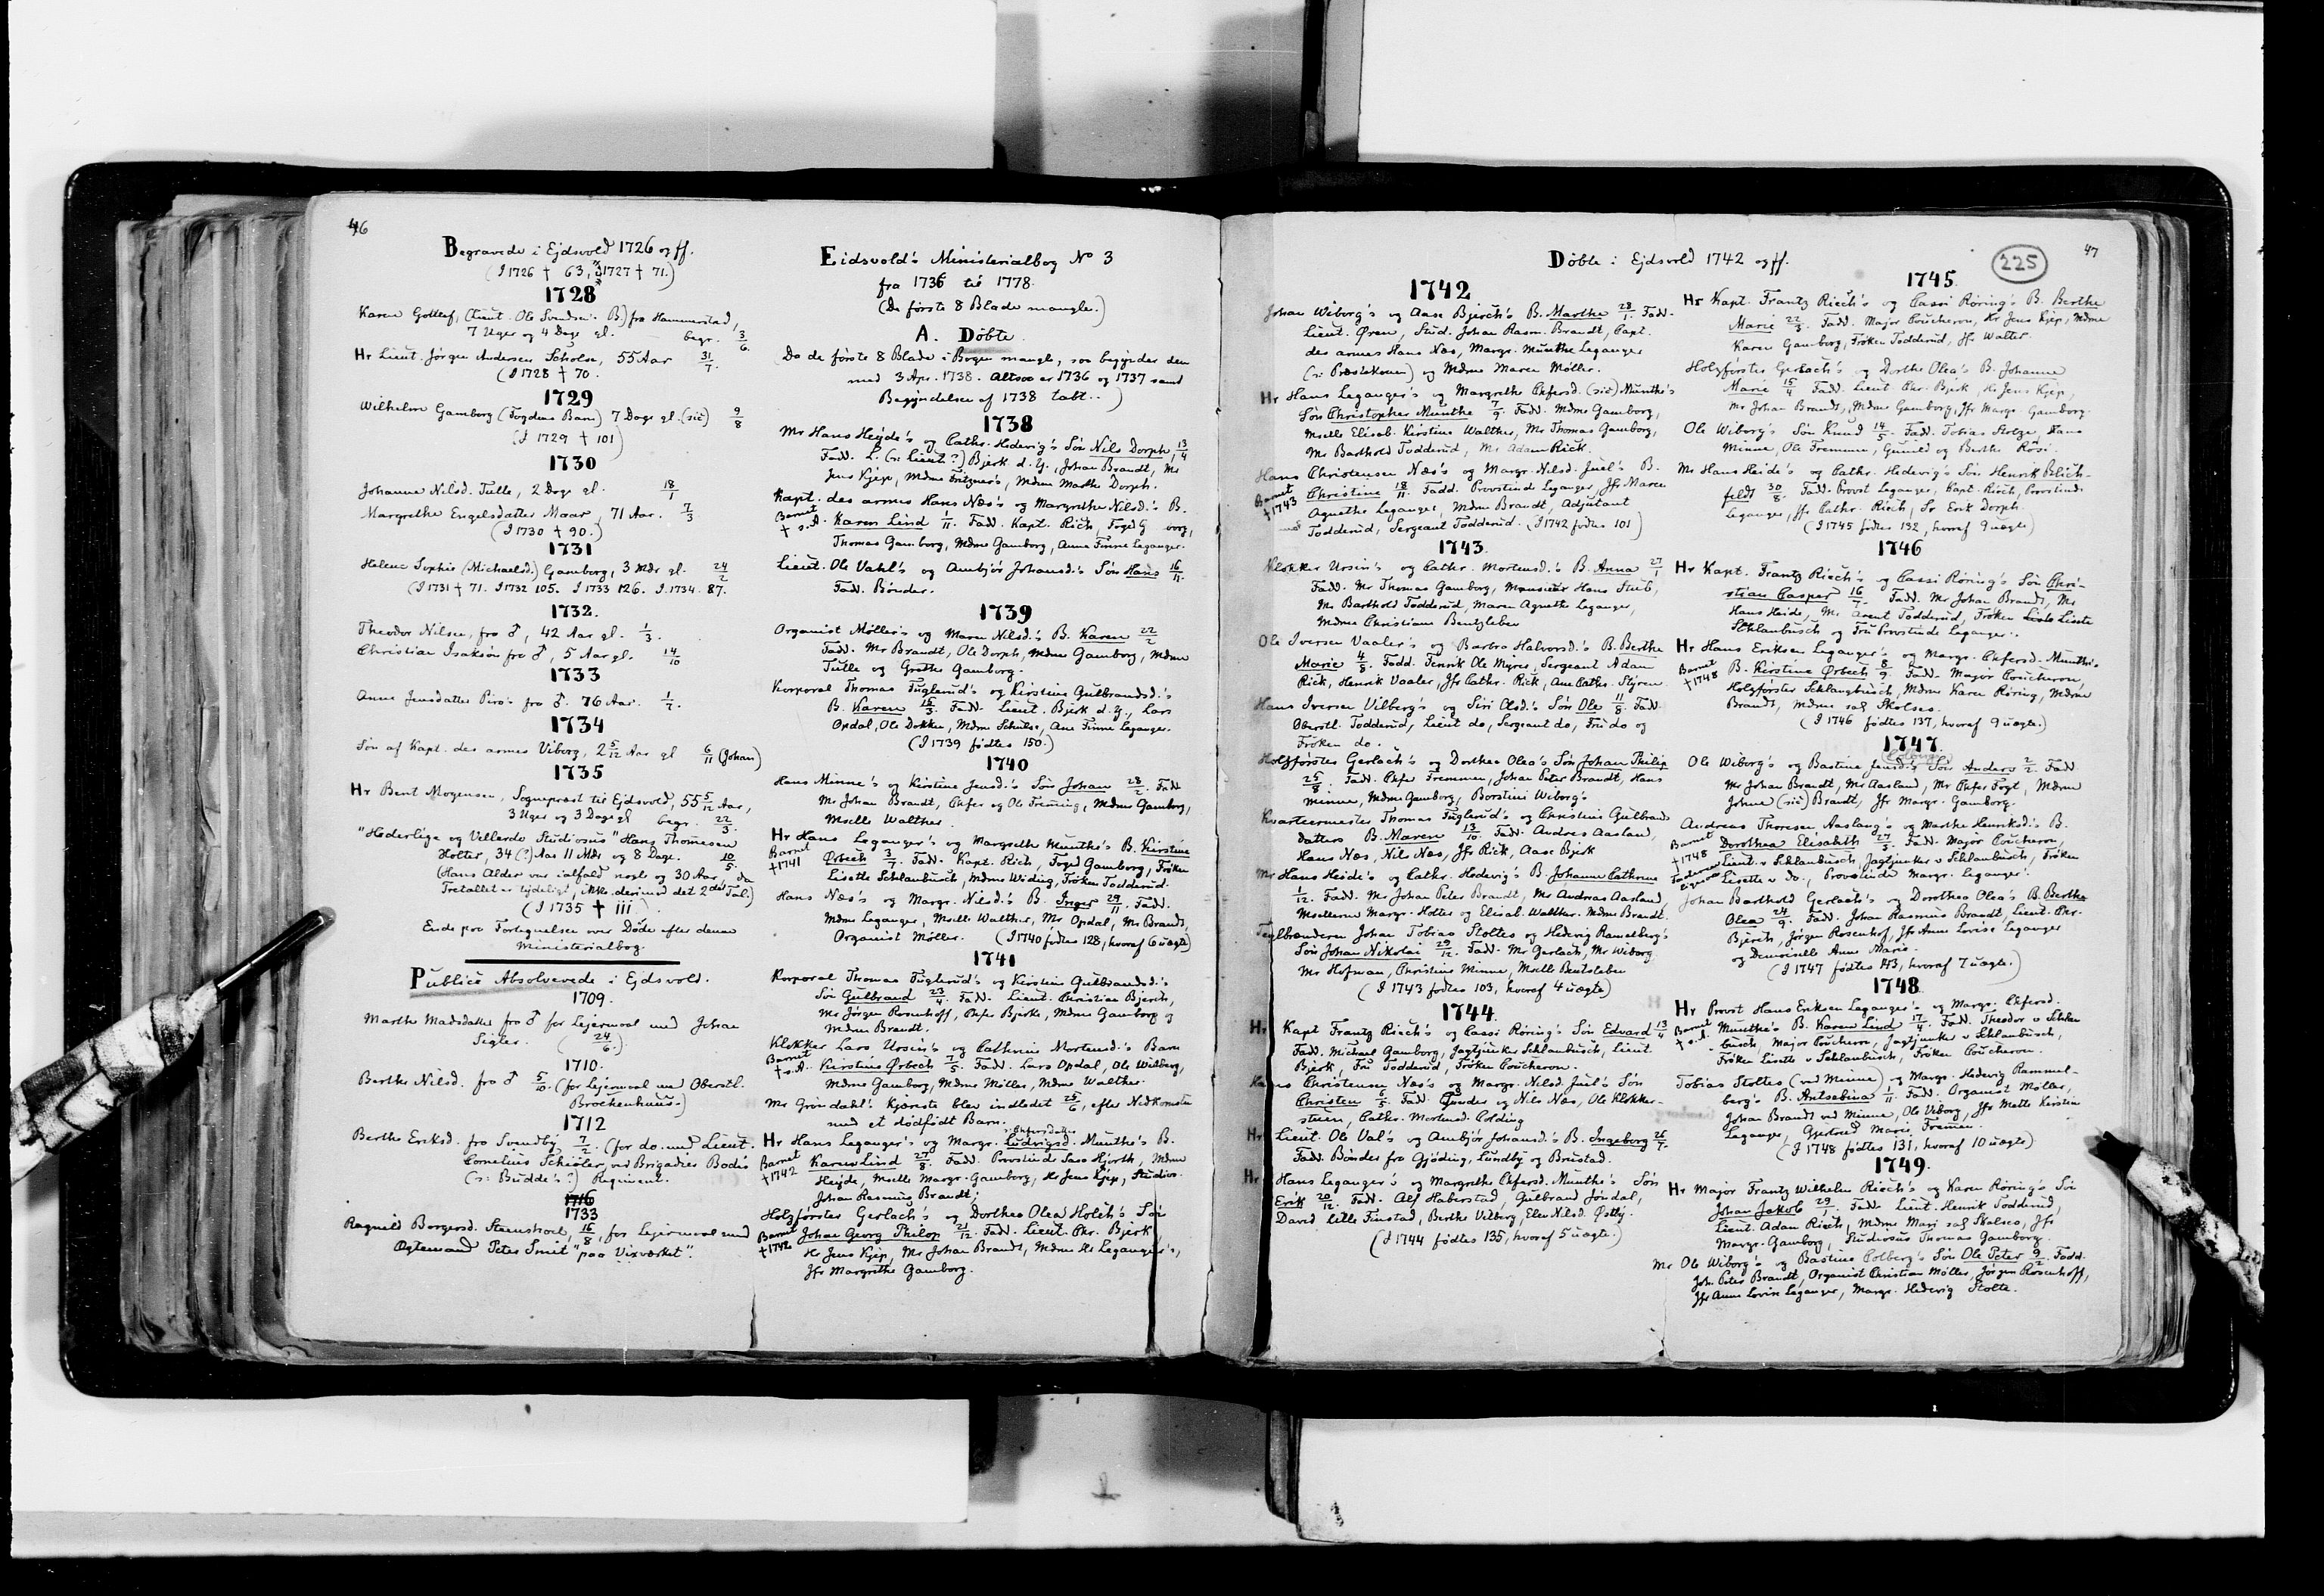 46
Begravede i Ejdsvold 1726 og ff.
(I 1726 † 63, I 1727 † 71.)
1728
Karen Gottlef, (Lieut. Ole Svendsen's B.) fra Hammerstad,
7 Uger og 4 Dage gl. begr. 3/6.
Hr Lieut. Jörgen Andersen Scholse, 55 Aar 31/7.
(I 1728 † 70.
1729
Wilhelm Gamborg (Fogdens Barn) 7 Dage gl. (sic) 9/8
(I 1729 † 101)
1730
Johanne Nilsd. Tulle, 2 Dage gl. 18/1
Margrethe Engelsdatter Maar, 71 Aar. 7/3
(I 1730 † 90.)
1731
Helene Sophie (Michaelsd.) Gamborg, 3 Mdr gl. 24/2
(I 1731 † 71. I 1732 105. I 1733 126. I 1734 87.
1732.
Theodor Nilsen, fra ♂, 42 Aar gl. 1/3.
Christian Isaksön fra ♂, 5 Aar gl. 14/10
1733
Anne Jensdatter Piro's fra ♂. 76 Aar. 1/2.
1734
Sön af Kapt. des armes Viborg, 2 5/12 Aar gl 6/11 (Johan)
1735
Hr Bent Mogensen, Sogneprest til Ejdsvold, 55 5/12 Aar,
3 Uger og 3 Dage gl begr. 22/3.
"Hæderlige og Vellærde Studiosus" Hans Thomesen
Holter, 34 (?) Aar 11 Mdr og 8 Dage. 10/5.
(Hans Alder var ialfald nogle og 30 Aar, da
Tretallet er tydeligt, ikke derimod det 2det Tal.)
(I 1735 † 111)
Ende paa Fortegnelsen over Döde efter denne
Ministerialbog.
Publice Absolverede i Ejdsvold.
1709.
Marthe Madsdatter fra ♂ for Lejermaal med Johan
Sigler. (24/6.)
1710.
Berthe Nilsd. fra ♂ 5/10. (for Lejermaal med Oberstl.
Brockenhuus.)
1712
Berthe Eriksd. fra Svendby 7/2. (for do. med Lieut.
Cornelius Schiöler, ved Brigadier Bodis
(ɔ: Budde's?) Regiment.
1716
1733
Ragnild Borgersd. Steensrod, 16/8, for Lejermaal med
Ægtemand Peter Smit "paa Værket".
Eidsvold's Ministerialbog No 3
fra 1736 til 1778.
(De förste 8 Blade mangle.)
A. Döbte.
Da de förste 8 Blade i Bogen mangle, saa begynder den
med 3 Apr. 1738. Altsaa er 1736 og 1737 samt
Begyndelsen af 1738 tabt..)
1738
Mr Hans Hejde's og Cathr. Hedevig's Sön Nils Dorph, 13/4
Fadd. L. (ɔ: Lieut?) Bjerk d. Y., Johan Brandt, Mr
Jens Kjep, Mdme Fritzner's, Mdme Marthe Dorph.
Kapt. des armes Hans Næs's og Margrethe Nilsd.'s B.
Barnet † s.A. Karen Lind 1/11. Fadd. Kapt. Rich, Foged G borg,
Thomas Gamborg, Mdme Gamborg, Anna Finne Leganger.
Lieut. Ole Vahl's og Ambjör Johansd.'s Sön Hans 16/11.
Fadd. Bönder.
1739
Organist Möller's og Maren Nilsd.'s B. Karen 22/2
Fadd. Mr Brandt, Ole Dorph, Mdme Gamborg, Mdme
Tulle og Grethe Gamborg.
Korporal Thomas Fuglerud's og Kirstine Gulbrandsd.'s
B. Karen 15/3. Fadd. Lieut. Bjerk d. Y., Lars
Opdal, Ole Dokken, Mdme Schulse, Ane Finne Leganger.
(I 1739 födtes 150.)
1740
Hans Minne's og Kirstine Jensd.'s Sön Johan 28/2. Fadd
Mr Johan Brandt, Chfer og Ole Freming, Mdme Gamborg,
Mselle Walther.
Hr Hans Leganger's og Margrethe Munthe's B. Kirstine
Barnet † 1741 Örbech 3/7. Fadd. Kapt. Rich, Foged Gamborg, Fröken
Lisette Schlanbusch, Mdme Widing, Fröken Todderud.
Hans Næs's og Margr. Nilsd.'s B. Inger 29/11. Fadd.
Mdme Leganger, Mselle Walther, Mr Opdal, Mr Brandt,
Organist Möller. (I 1740 födtes 128, hvoraf 6 uægte)
1741
Korporal Thomas Fuglerud's og Kirstine Gulbrandsd.'s
Sön Gulbrand 23/4. Fadd. Lieut. Christian Bjerch,
Mr Jörgen Rosenhoff, Chfer Bjerke, Mdme Gamborg og
Mdme Brandt.
Klokker Lars Ursin's og Cathrine Mortensd.'s Barn
Barnet † s.A. Kirstine Örbech 7/5. Fadd. Lars Opdal, Ole Wilberg,
Mdme Gamborg, Mdme Möller, Mdme Walther.
Mr Gröndahl's Kjæreste blev indledet 25/6, efter Nedkomsten
med et dödfödt Barn.
Chfersdatter
Hr Hans Leganger's og Margr. Ludvigsd. Munthe's B.
Barnet † 1742 Karen Lind 27/8. Fadd. Provstinde Sara Hjorth, Mdme
Hejde, Mselle Margr. Gamborg, Hr Jens Kjep, Studios.
Johan Rasmus Brandt.
Holzförster Gerlach's og Dorthea Olea Holch's Sön
Barnet † 1742 Johan Georg Philop 21/12. Fadd. Lieut. Chr. Bjerk,
Hr Jens Kjep, Mr Johan Brandt, Mdme Hr Leganger's,
Jfr Margrethe Gamborg.
47
225
Döbte i Ejdsvold 1742 og ff.
1742
Johan Wiborg's og Aase Bjerch's B. Marthe 28/1. Fadd.
Lieut. Øren, Stud. Johan Rasm. Brandt, Capt.
des armes Hans Næs, Margr. Munthe Leganger
(ɔ: Præstekonen) og Mdme Maren Möller.
Hr Hans Leganger's og Margrethe Chfersd. (sic) Munthe's
Sön Christopher Munthe 7/9. Fadd. Mdme Gamborg,
Mselle Elisab. Kirstine Walther, Mr Thomas Gamborg,
Mr Barthold Todderud, Mr Adam Rick.
Hans Christensen Næs's og Margr. Nilsd. Juel's B.
Barnet † 1743 Christine 18/11. Fadd. Provstinde Leganger, Jfr Maren
Agnethe Leganger, Mdme Brandt, Adjutant
Todderud, Sergeant Todderud. (I 1742 födtes 101)
1743.
Klokker Ursin's og Cathr. Mortensd.'s B. Anna 27/1
Fadd. Mr Thomas Gamborg, Monsieur Hans Stub,
Mr Barthold Todderud, Maren Agnethe Leganger,
Mdme Christiane Bentzleben
Ole Iversen Vaaler's og Barbra Halvorsd.'s B. Berthe
Marie 4/8. Fadd. Fenrik Ole Myres, Sergeant Adam
Rick, Henrik Vaaler, Jfr Cathr. Rick, Ane Cathr. Styren
Hans Iversen Vilberg's og Siri Olsd.'s Sön Ole 11/8. Fadd.
Oberstl. Todderud, Lieut do, Sergeant do, Fru do og
Fröken do.
Holzförster Gerlach's og Dorthea Olea's Sön Johan Philip
25/8. Fadd. Chfer Fremmen, Johan Peter Brandt, Hans
Minne, Mdme Gamborg, Borstini Wiborg's
Kvarteermester Thomas Fuglerud's og Christine Gulbrands
datters B. Maren 13/10. Fadd. Andres Aasland,
Hans Næs, Nils Næs, Jfr Rick, Aase Bjerk
Mr Hans Heide's og Cathr. Hedevig's B. Johanne Cathrine
1/12. Fadd. Mr Johan Peter Brandt, Mr Andreas Aasland,
Msellerne Margr. Holter og Elisab. Walther. Mdme Brandt.
Teglbrænderen Johan Tobias Stoltes og Hedevig Ramelberg's
Sön Johan Nikolai 29/12. Fadd. Mr Gerlach, Mr Wiborg
Mr Hofman, Christine Minne, Mselle Bentsleben
(I 1743 födtes 103, hvoraf 4 uægte)
1744.
Hr Kapt Frantz Riech's og Cassi Röring's Sön Edvard 13/4
Fadd. Michael Gamborg, Jagtjunker Schlanbusch, Lieut
Bjerk, Fru Todderud, Fröken Coucheron.
Hans Christensen Næs's og Margr. Nilsd. Juel's Sön
Christen 6/5. Fadd. Gunder og Nils Næs, Ole Klokker-
stuen, Cathr. Mortensd. Colding
Hr Lieut. Ole Val's og Ambjör Johansd.'s B. Ingeborg 26/7.
Fadd. Bönder fra Gjöding, Lundby og Brustad.
Hr Hans Leganger's og Margrethe Chfersd. Munthe's Sön
Erik 20/12. Fadd. Alf Haberstad, Gulbrand Jöndal,
David Lille Finstad, Berthe Vilberg, Elen Nilsd. Østby.
(I 1744 födtes 135, hvoraf 5 uægte.)
1745.
Hr Kapt. Frantz Riech's og Cassi Röring's B. Berthe
Marie 22/3. Fadd. Major Coucheron, Hr Jens Kjep, Mdme
Karen Gamborg, Fröken Todderud, Jfr Walter.
Holzförster Gerlach's og Dorthe Olea's B. Johanne
Marie 15/4 Fadd. Lieut Chr. Bjerk, Hr Jens Kjep,
Mr Johan Brandt, Mdme Gamborg, Jfr Margr. Gamborg.
Ole Wiborg's Sön Knud 14/5. Fadd. Tobias Stolze, Hans
Minne, Ole Fremmen, Gunild og Berthe Rösi.
Mr Hans Heide's og Cathr. Hedevig's Sön Henrik Blich-
feldt 30/8. Fadd. Provst Leganger, Capt. Riech, Provstinde
Leganger, Jfr Cathr. Riech, Sr Erik Dorph.
(I 1745 födtes 132, hvoraf 9 uægte)
1746
Hr Kapt. Frantz Riech's og Cassi Röring's Sön Chri-
stian Casper 16/7. Fadd. Mr Johan Brandt, Mr
Hans Heide, Mr Arent Todderud, Fröken Lisette
Schlanbusch og Fru Provstinde Leganger.
Hr Hans Eriksen Leganger's og Margr. Chfersd. Munthe's
Barnet † 1748 B. Kirstine Ørbech 8/9. Fadd. Major Coucheron,
Holzförster Schlangbusch, Mdme Karen Röring, Mdme
Brandt, Mdme sal Skolses.
(I 1746 födtes 137, hvoraf 9 uægte.)
1747.
Colberg
Ole Wiborg's og Bastine Jensd.'s Sön Anders 2/2. Fadd
Mr Johan Brandt, Mr Aasland, Mr Chfer Fogt, Mdme
Johne (sic) Brandt, Jfr Margr. Gamborg.
Andreas Thoresen Aaslang's og Marthe Henriksd.'s B.
Barnet † 1748 Dorothea Elisabeth 27/3. Fadd. Major Coucheron,
Lieut. v Schlanbusch, Jagtjunker v Schlanbusch, Fröken
Lisette v do., Provstinde Margr. Leganger.
Johan Barthold Gerlach's og Dorothea Olea's B. Berthe
Olea 24/9. Fadd. Johan Rasmus Brandt, Lieut. Chr.
Bjerch, Jörgen Rosenhof, Jfr Anne Lovise Leganger
og Demoiselle Anne Marie.
(I 1747 födtes 143, hvoraf 7 uægte.)
1748
Hr Provst Hans Eriksen Leganger's og Margr. Chfersd.
Barnet † s.A Munthe's B. Karen Lind 17/4. Fadd. Theodor v Schlan
busch, Major Coucheron, Jagtjunker v Schlanbusch,
Fröken Lisette v Schlanbusch, Fröken Coucheron.
Tobias Stoltes (ved Minne) og Margr. Hedevig Rammel-
berg's B. Antsebina 1/11. Fadd. Organist Möller,
Johan Brandt ved Minne, Ole Viborg, Jfr Mette Kirstine
Leganger, Gjertrud Marie Fremen.
(I 1748 födtes 131, hvoraf 10 uægte)
1749.
Hr Major Frantz Wilhelm Riech's og Karen Röring's Sön
Johan Jakob 29/1. Fadd. Lieut. Henrik Todderud,
Lieut. Adam Riech, Mdme Mari sal Skolses, Jfr
Margr. Gamborg, Studiosus Thomas Gamborg.
Mr Ole Wiborg's og Bastine Colberg's Sön Ole Peter 9/2. Fadd.
Joh. Peter Brandt, Organist Christian Möller, Jörgen Rosenhoff,
Jfr Anne Lovise Leganger, Margr. Hedevig Stolte.